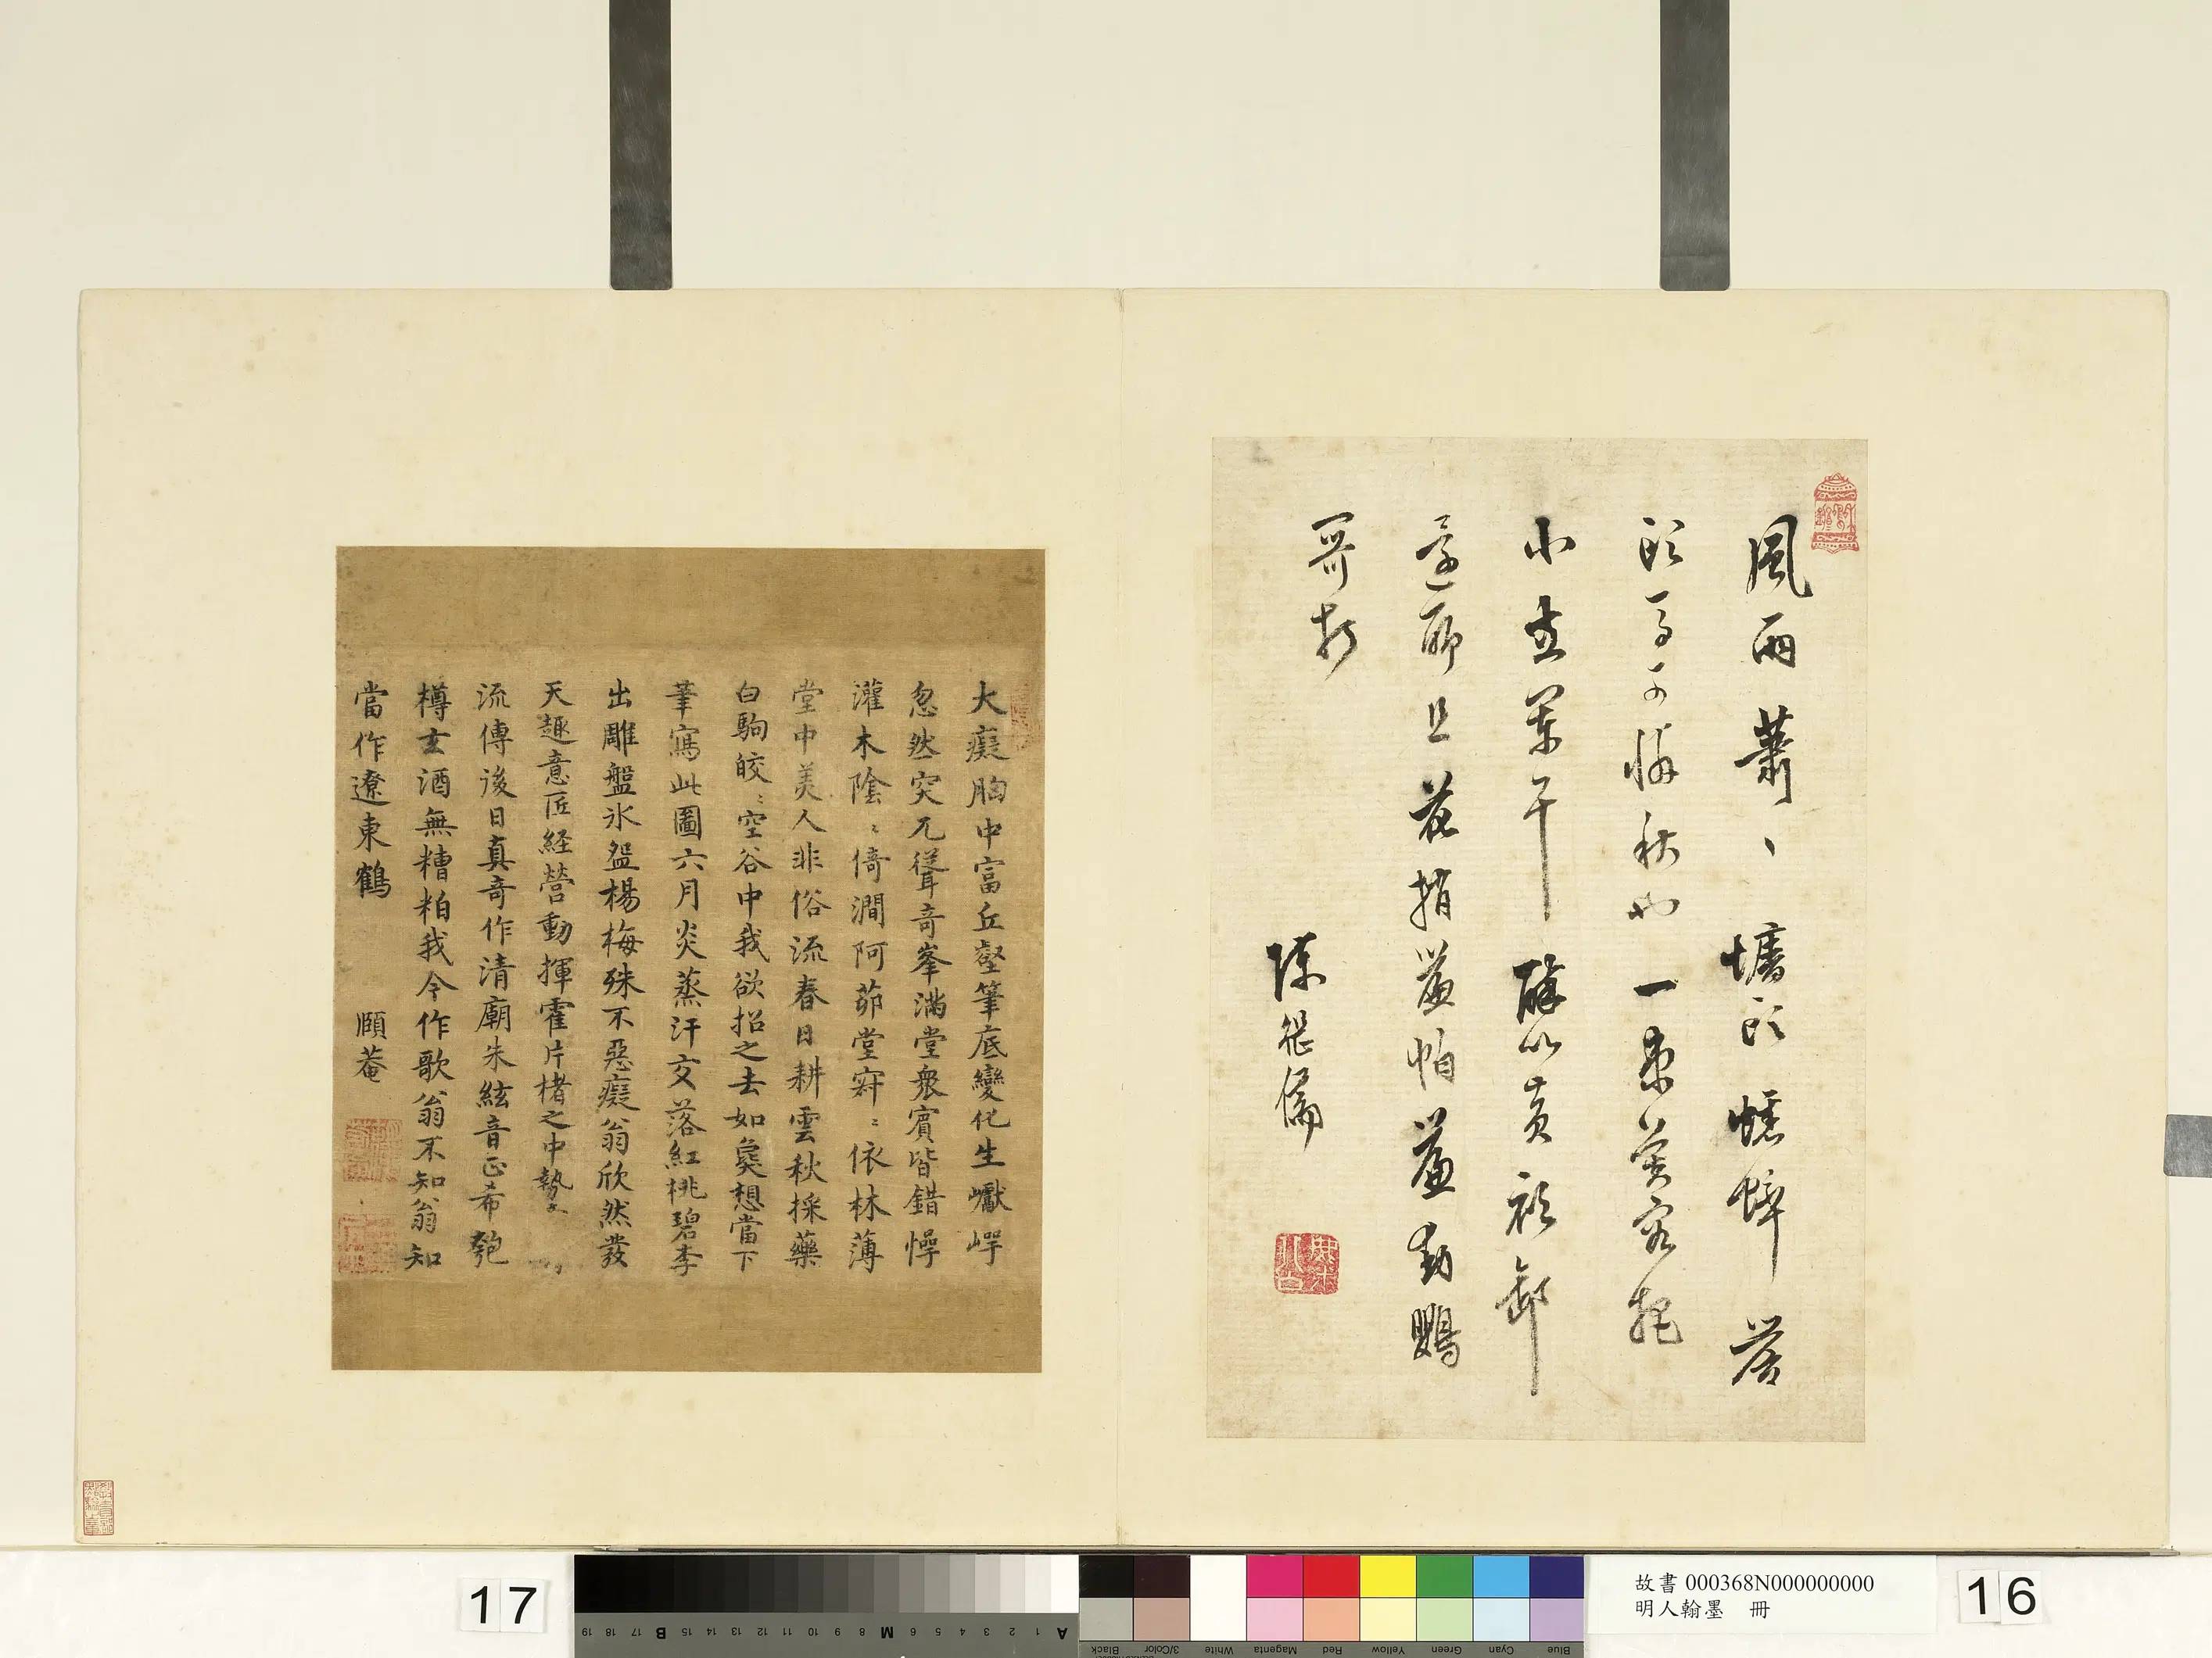 風雨蕭、墻頭蟋蟀答
小立闌干醉以黃衫卸
還郎且花揹簾怕簾動鸚
哥打
陳繼儒
大癡胸中富丘壑筆底變化生巘崿
忽然突兀聳奇峯滿堂衆賓皆錯愕
灌木陰〻倚澗阿茆堂𡧯〻依林薄
堂中美人非俗流春日耕雲秋採藥
白駒皎〻空谷中我欲招之去如奐想當下
筆寫此圖六月炎蒸汗交落紅桃碧李
出雕盤氷盌楊梅殊不惡癡翁欣然發
天趣意匠経營動揮霍片楮之中勢
流傳後日真奇作清廟朱絃音正希匏
樽玄酒無糟粕我今作歌翁不知翁知
當作遼東鶴
頤菴
17
16
故書 000368N000000000
明人翰墨 冊
A 1 2 3 4 5 6 7 8 M 9 10 11 12 13 14 15 B 17 18 19
Blue Cyan Green Yellow Red Magenta White 3/Color Black